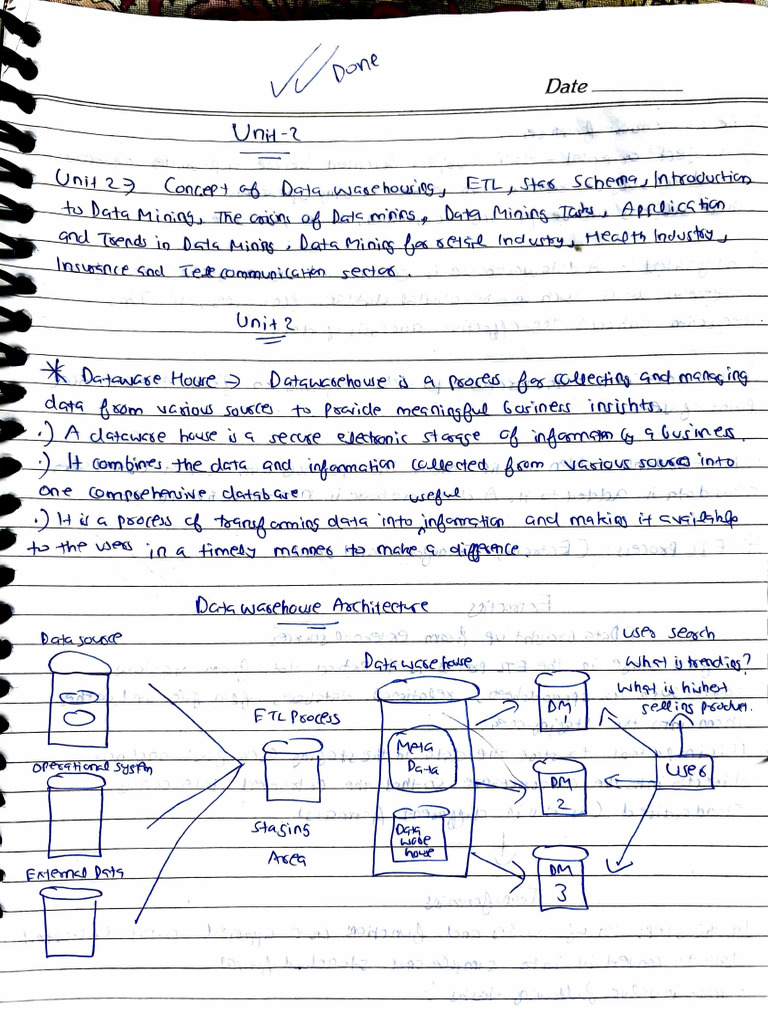 Done
Date
Unit-2
Unit 2 → Concept of Data warehousing, ETL, Star Schema, Introduction
to Data Mining, The origins of Data mining, Data Mining Tasks, Application
and Trends in Data Mining, Data Mining for retail Industry, Health Industry,
Insurance and Telecommunication sector.
Unit 2
* Dataware House → Datawarehouse is a process for collecting and managing
data from various sources to provide meaningful business insights.
.) A dataware house is a secure electronic storage of information by a business.
.) It combines the data and information collected from various sources into
one comprehensive database
useful
.) It is a process of transforming data into ^ information and making it available
to the users in a timely manner to make a difference.
Data warehouse Architecture
Data source
User search
Datawarehouse
What is trending?
What is highest
selling product.
ETL Process
DM
1
Meta
Data
Operational system
User
DM
2
Staging
Area
Data
ware
house
External Data
DM
3